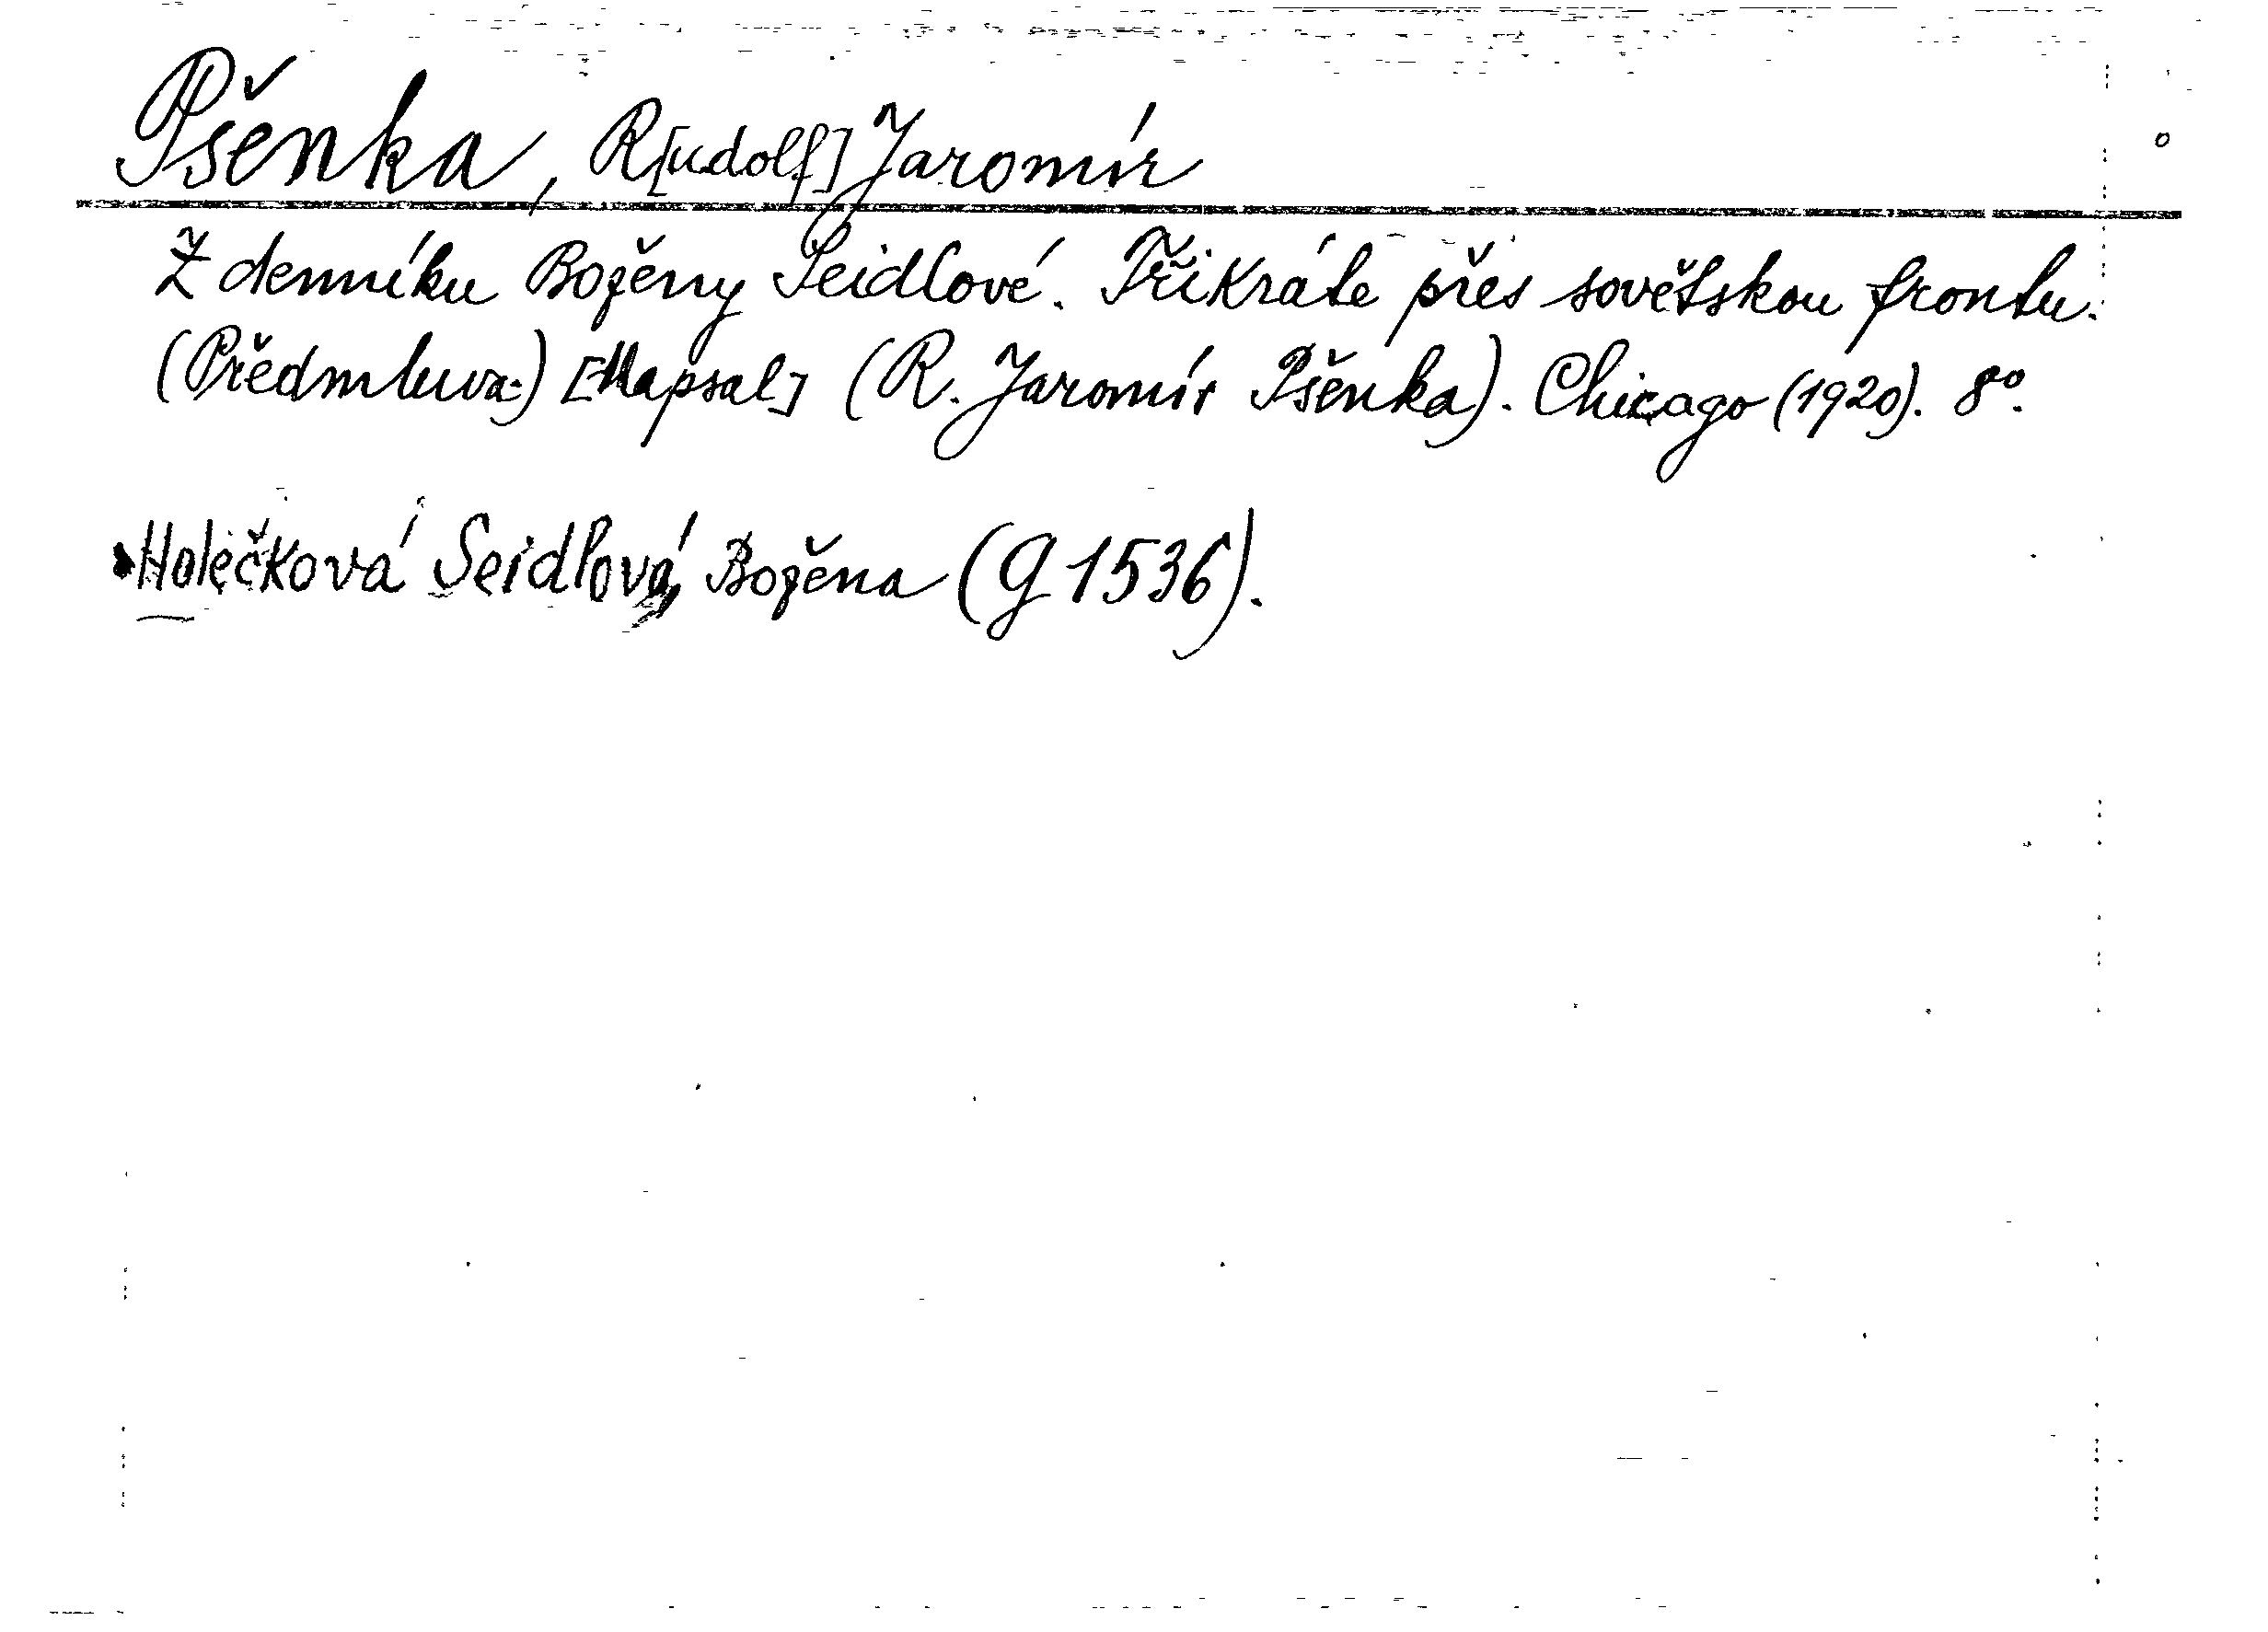 Pšenka, R[udolf] Jaromír
Z denníku Boženy Seidlové. Třikráte přes sovětskou frontu.
(Předmluva.) [Napsal] (R. Jaromír Pšenka). Chicago (1920). 8°.
Holečková Seidlová, Božena (G 1536).